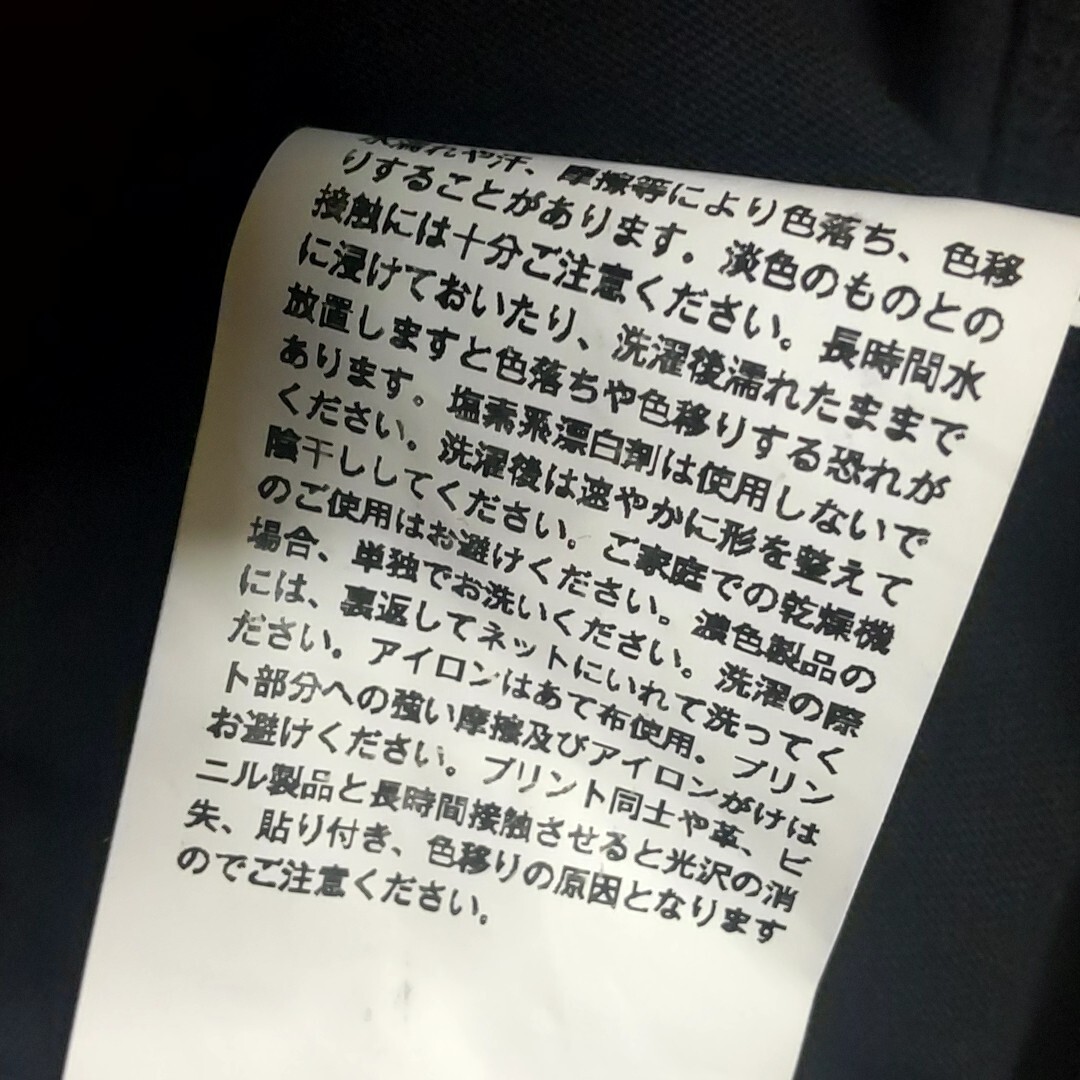 水濡れや汗、摩擦等により色落ち、色移
りすることがあります。淡色のものとの
接触には十分ご注意ください。長時間水
に浸けておいたり、洗濯後濡れたままで
放置しますと色落ちや色移りする恐れが
あります。塩素系漂白剤は使用しないで
ください。洗濯後は速やかに形を整えて
陰干ししてください。ご家庭での乾燥機
のご使用はお避けください。濃色製品の
場合、単独でお洗いください。洗濯の際
には、裏返してネットにいれて洗ってく
ださい。アイロンはあて布使用。プリン
ト部分への強い摩擦及びアイロンがけは
お避けください。プリント同士や革、ビ
ニル製品と長時間接触させると光沢の消
失、貼り付き、色移りの原因となります
のでご注意ください。